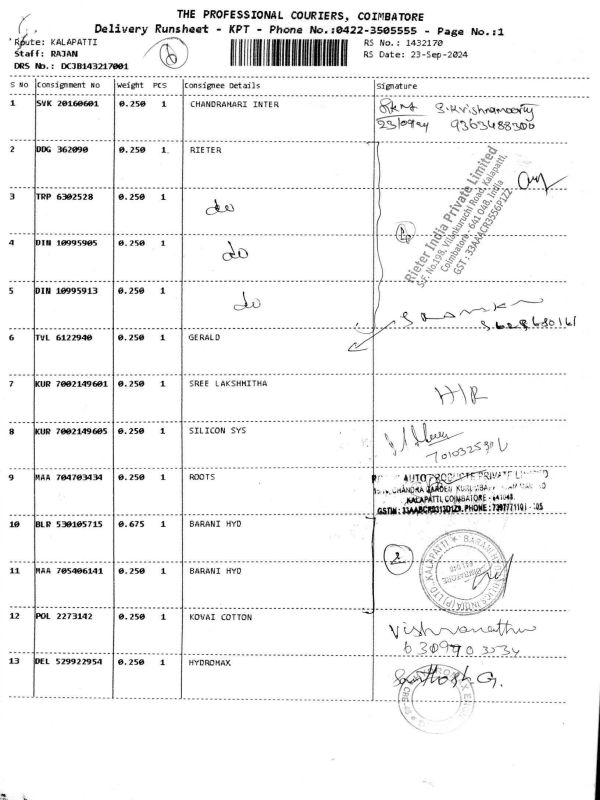 THE PROFESSIONAL COURIERS, COIMBATORE
Delivery Runsheet - KPT - Phone No.:0422-3505555 - Page No.:1
Route: KALAPATTI
RS No.: 1432170
Staff: RAJAN
RS Date: 23-Sep-2024
DRS No.: DCJB143217001
S No Consignment No Weight PCS Consignee Details Signature
1 SVK 20160601 0.250 1 CHANDRAHARI INTER
9363488300
2 DDG 362090 0.250 1 RIETER
Rieter India Private Limited
SF. No.198, Villankuruchi Road, Kalapatti,
Coimbatore - 641 048, India
GST : 33AAACR3556P1ZZ
3 TRP 6302528 0.250 1 do
4 DIN 10995905 0.250 1 do
5 DIN 10995913 0.250 1 do
6 TVL 6122940 0.250 1 GERALD
7 KUR 7002149601 0.250 1 SREE LAKSHMITHA
H/R
8 KUR 7002149605 0.250 1 SILICON SYS
9 MAA 704703434 0.250 1 ROOTS
AUTO PRODUCTS PRIVATE LIMITED
KALAPATTI, COIMBATORE - 641048.
10 BLR 530105715 0.675 1 BARANI HYD
2
11 MAA 705406141 0.250 1 BARANI HYD
12 POL 2273142 0.250 1 KOVAI COTTON
Vishvanathan
13 DEL 529922954 0.250 1 HYDROMAX
Santhosh G.